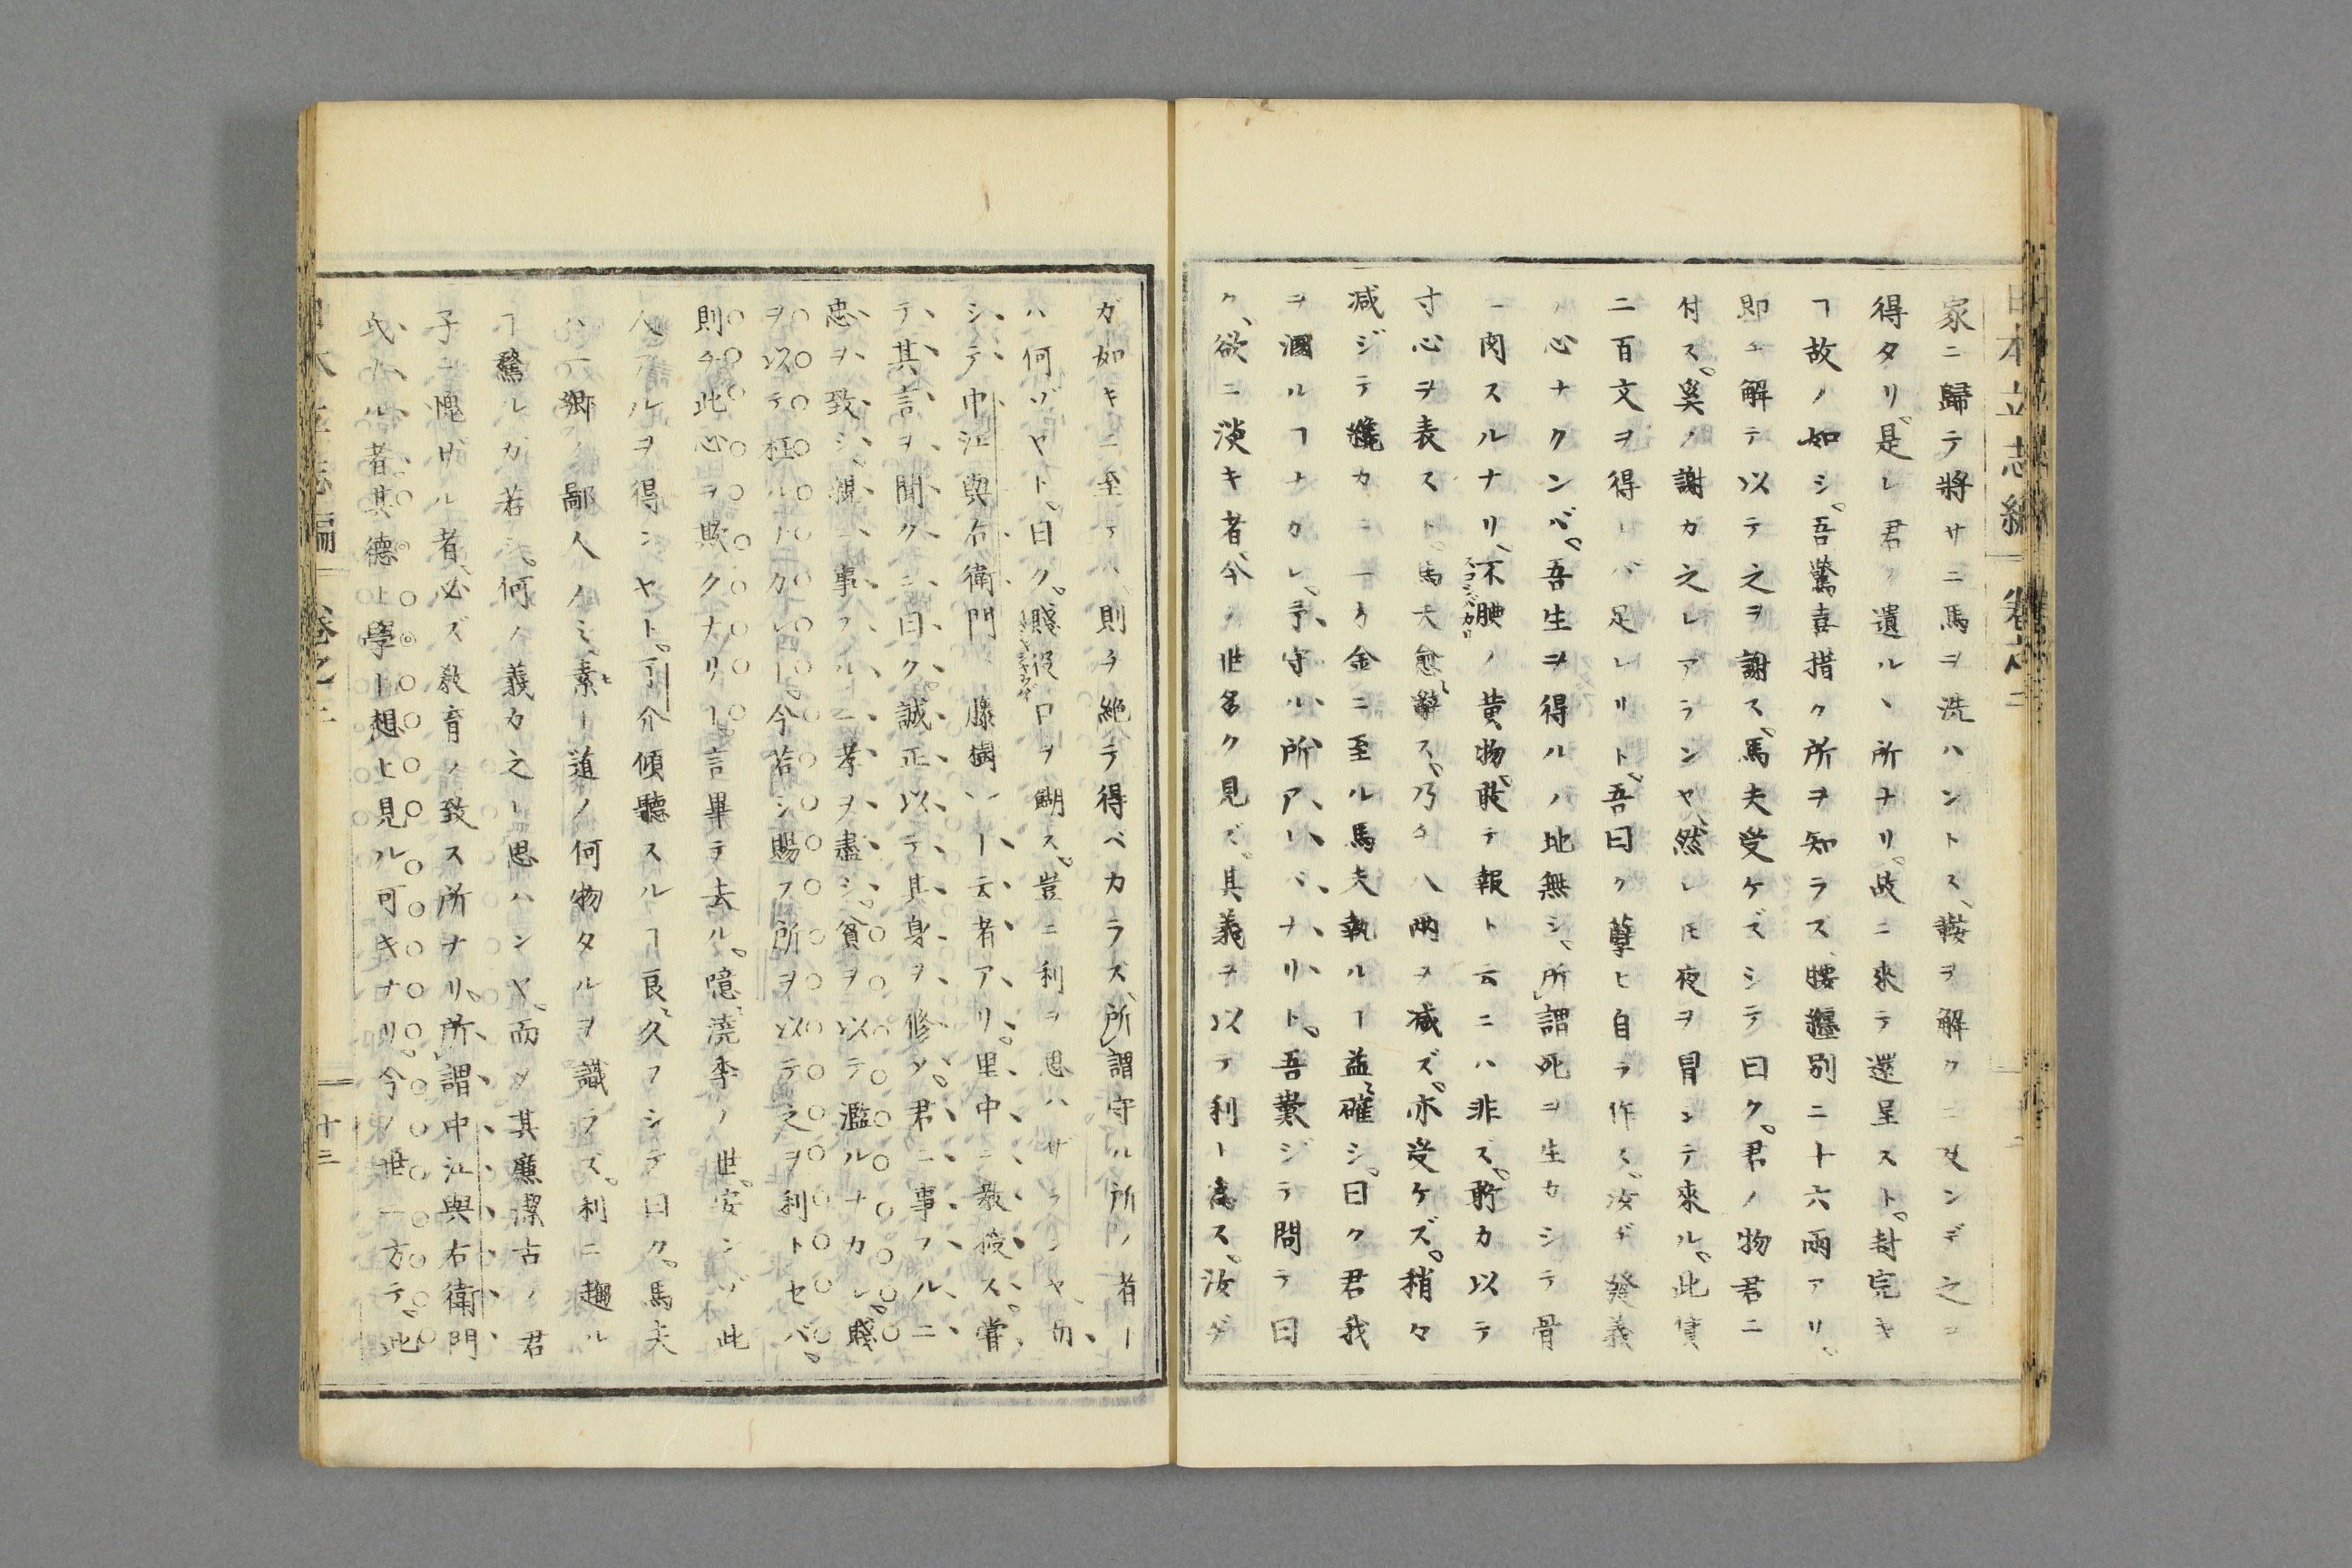 日本立志編 卷之二
家ニ歸テ將サニ馬ヲ洗ハントス、鞍ヲ解クニ及ンデ之ヲ
得タリ。是レ君ノ遺ル、所ナリ。故ニ來テ還呈スト。封完キ
ヿ故ノ如シ。吾驚喜措ク所ヲ知ラズ、腰纏別ニ十六兩アリ。
即チ解テ以テ之ヲ謝ス、馬夫受ケズシテ曰ク。君ノ物君ニ
付ス。奚ノ謝カ之レアランヤ、然レ𪜈夜ヲ冒シテ來ル。此賃
二百文ヲ得レバ足レリト。吾曰ク孽ヒ自ラ作ス。汝ヂ發義
ノ心ナクンバ。吾生ヲ得ルノ地無シ、所謂死ヲ生カシテ骨
ニ肉スルナリ、不腆ノ黄物。敢テ報ト云ニハ非ズ。聊カ以テ
寸心ヲ表スト。馬夫愈辭ス。乃チ八兩ヲ減ズ。亦受ケズ。稍々
減ジテ纔カニ一方金ニ至ル馬夫執ルヿ益確シ。曰ク君我
ヲ溷ルヿナカレ。予守ル所アレバナリト。吾歎ジテ問テ曰
ク、欲ニ淡キ者、今ノ世多ク見ズ。其義ヲ以テ利ト爲ス。汝ヂ
ガ如キニ至テハ、則チ絶テ得ベカラズ、所謂守ル所ノ者ー
ハ何ゾヤト。曰ク。賤役口ヲ餬ス。豈ニ利ヲ思ハザランヤ、但
シテ中江與右衛門、藤樹、ー云者アリ。里中ニ敎授ス。嘗
テ、其言ヲ聞クニ曰ク。誠正以テ其身ヲ修メ。君ニ事フルニ
忠ヲ致シ、親ニ事フルニ孝ヲ盡シ。貧ヲ以テ濫ルナカレ。賤
ヲ以テ枉ルナカレー。今若シ賜フ所ヲ以テ之ヲ利トセバ。
則チ此心ヲ欺クナリー言畢テ去ル。噫澆季ノ世。安ンゾ此
人アルヲ得ンヤト。了介傾聽スルヿ良久フシテ曰ク。馬夫
ハ一郷ノ鄙人ノミ、素ー道ノ何物タルヲ識ラズ。利ニ趨ル
ヿ驚ルガ若シ。何ノ義カ之レ思ハンヤ。而メ其廉潔古ノ君
子ニ愧ザル者、必ズ敎育ノ致ス所ナリ。所謂中江與右衛門
氏ナル者、其德ト學ー想ヒ見ル可キナリ。今ノ世一方テ。此
日本立志編 卷之二 十三